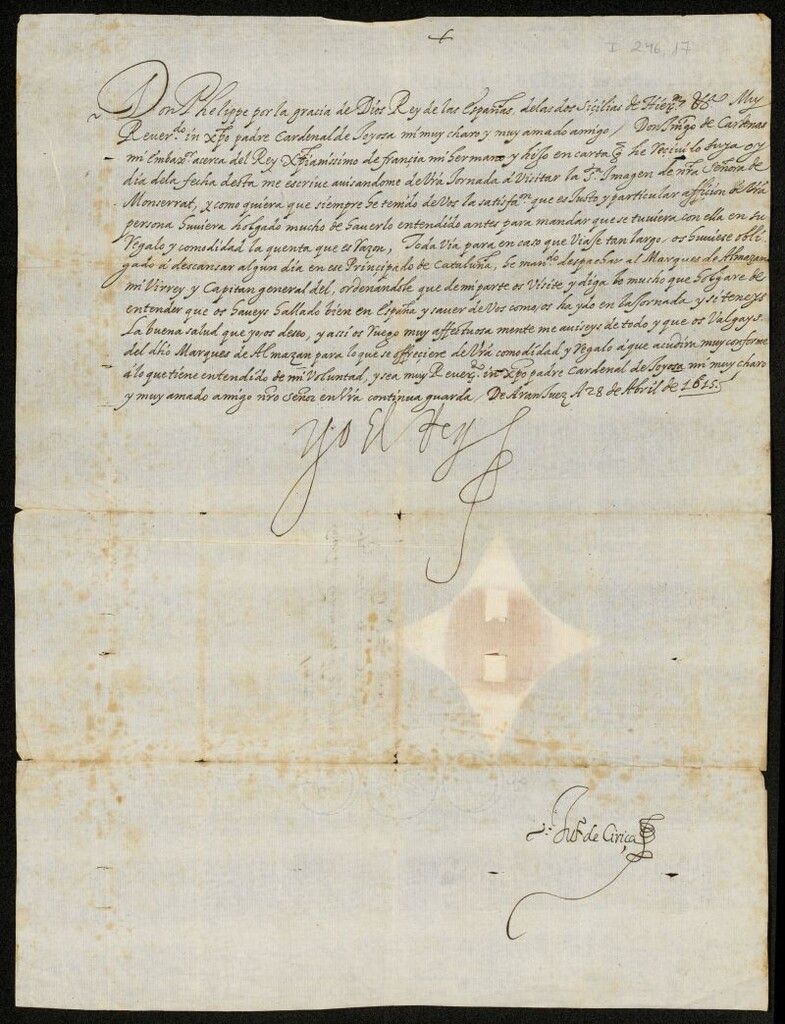 I 246, 17
Don Phelippe por la gracia de Dios Rey de las Españas, delas dos Sicilias de Hierm &c. Muy
Reuer.do in xpo padre Cardenal de Joyosa mi muy charo y muy amado amigo, Don Iñigo de Cardenas
mi Embaxor. acerca del Rey xpianissimo de francia mi hermano y hijo en carta q he reciuido suya oy
dia dela fecha desta me escriue auisandome de vra Jornada á Visitar la Sta. Imagen de nra Señora de
Monserrat, y como quiera que siempre he tenido de Vos la satisfan que es Justo, y particular affición de vra
persona huuiera holgado mucho de hauerlo entendido antes para mandar que se tuuiera con ella en su
regalo y comodidad la quenta que es razon, Toda Via para en caso que Viaje tan largo, os huuiese obli
gado á descansar algun dia en ese Principado de Cataluña, he mando despachar al Marques de Almazan
mi Virrey y Capitan general del, ordenandole que de mi parte os Visite y diga lo mucho que holgare de
entender que os haueys hallado bien en España y sauer de Vos como os ha ydo en la Jornada, y si teneys
la buena salud que yo os deseo, y assi os Ruego muy affettuosa mente me auiseys de todo y que os Valgays
del dho Marques de Almazan para lo que se offreciere de vra comodidad y regalo á que acudira muy conforme
á lo que tiene entendido de mi Voluntad, y sea muy Reuer. in xpo padre Cardenal de Joyosa mi muy charo
y muy amado amigo nro señor en vra continua guarda, De Aranjuez A 28 de Abril de 1615.
Yo El Rey
de Ciriça